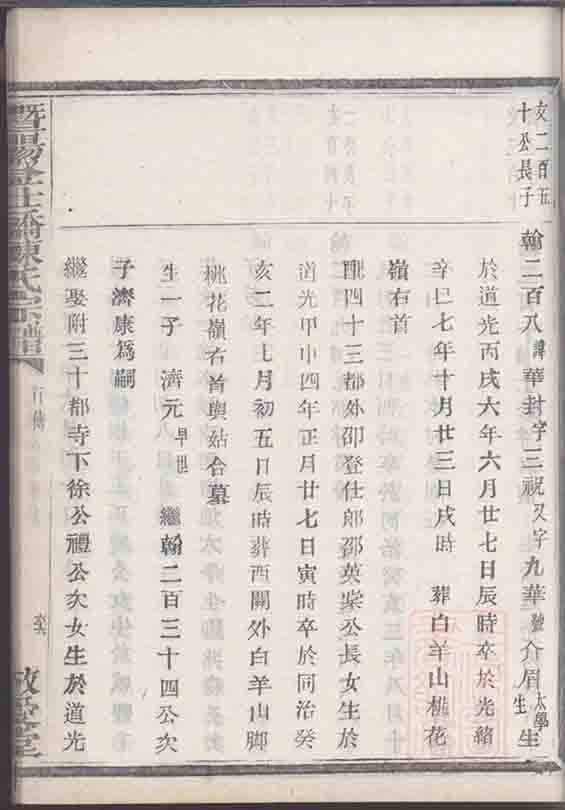 文二百五
十公長子
翰二百八諱華封字三祝又字九華號介眉太學生生
於道光丙戌六年六月廿七日辰時卒於光緒
辛巳七年十月廿三日戌時 葬白羊山桃花
嶺右首
配四十三都外卲登仕郎邵英崇公長女生於
道光甲申四年正月廿七日寅時卒於同治癸
亥二年七月初五日辰時葬西關外白羊山脚
桃花嶺右首與姑合墓
生一子 濟元早世 繼翰二百三十四公次
子濟康為嗣
繼娶附三十都寺下徐公禮公次女生於道光
暨陽 陳氏宗譜
行傳